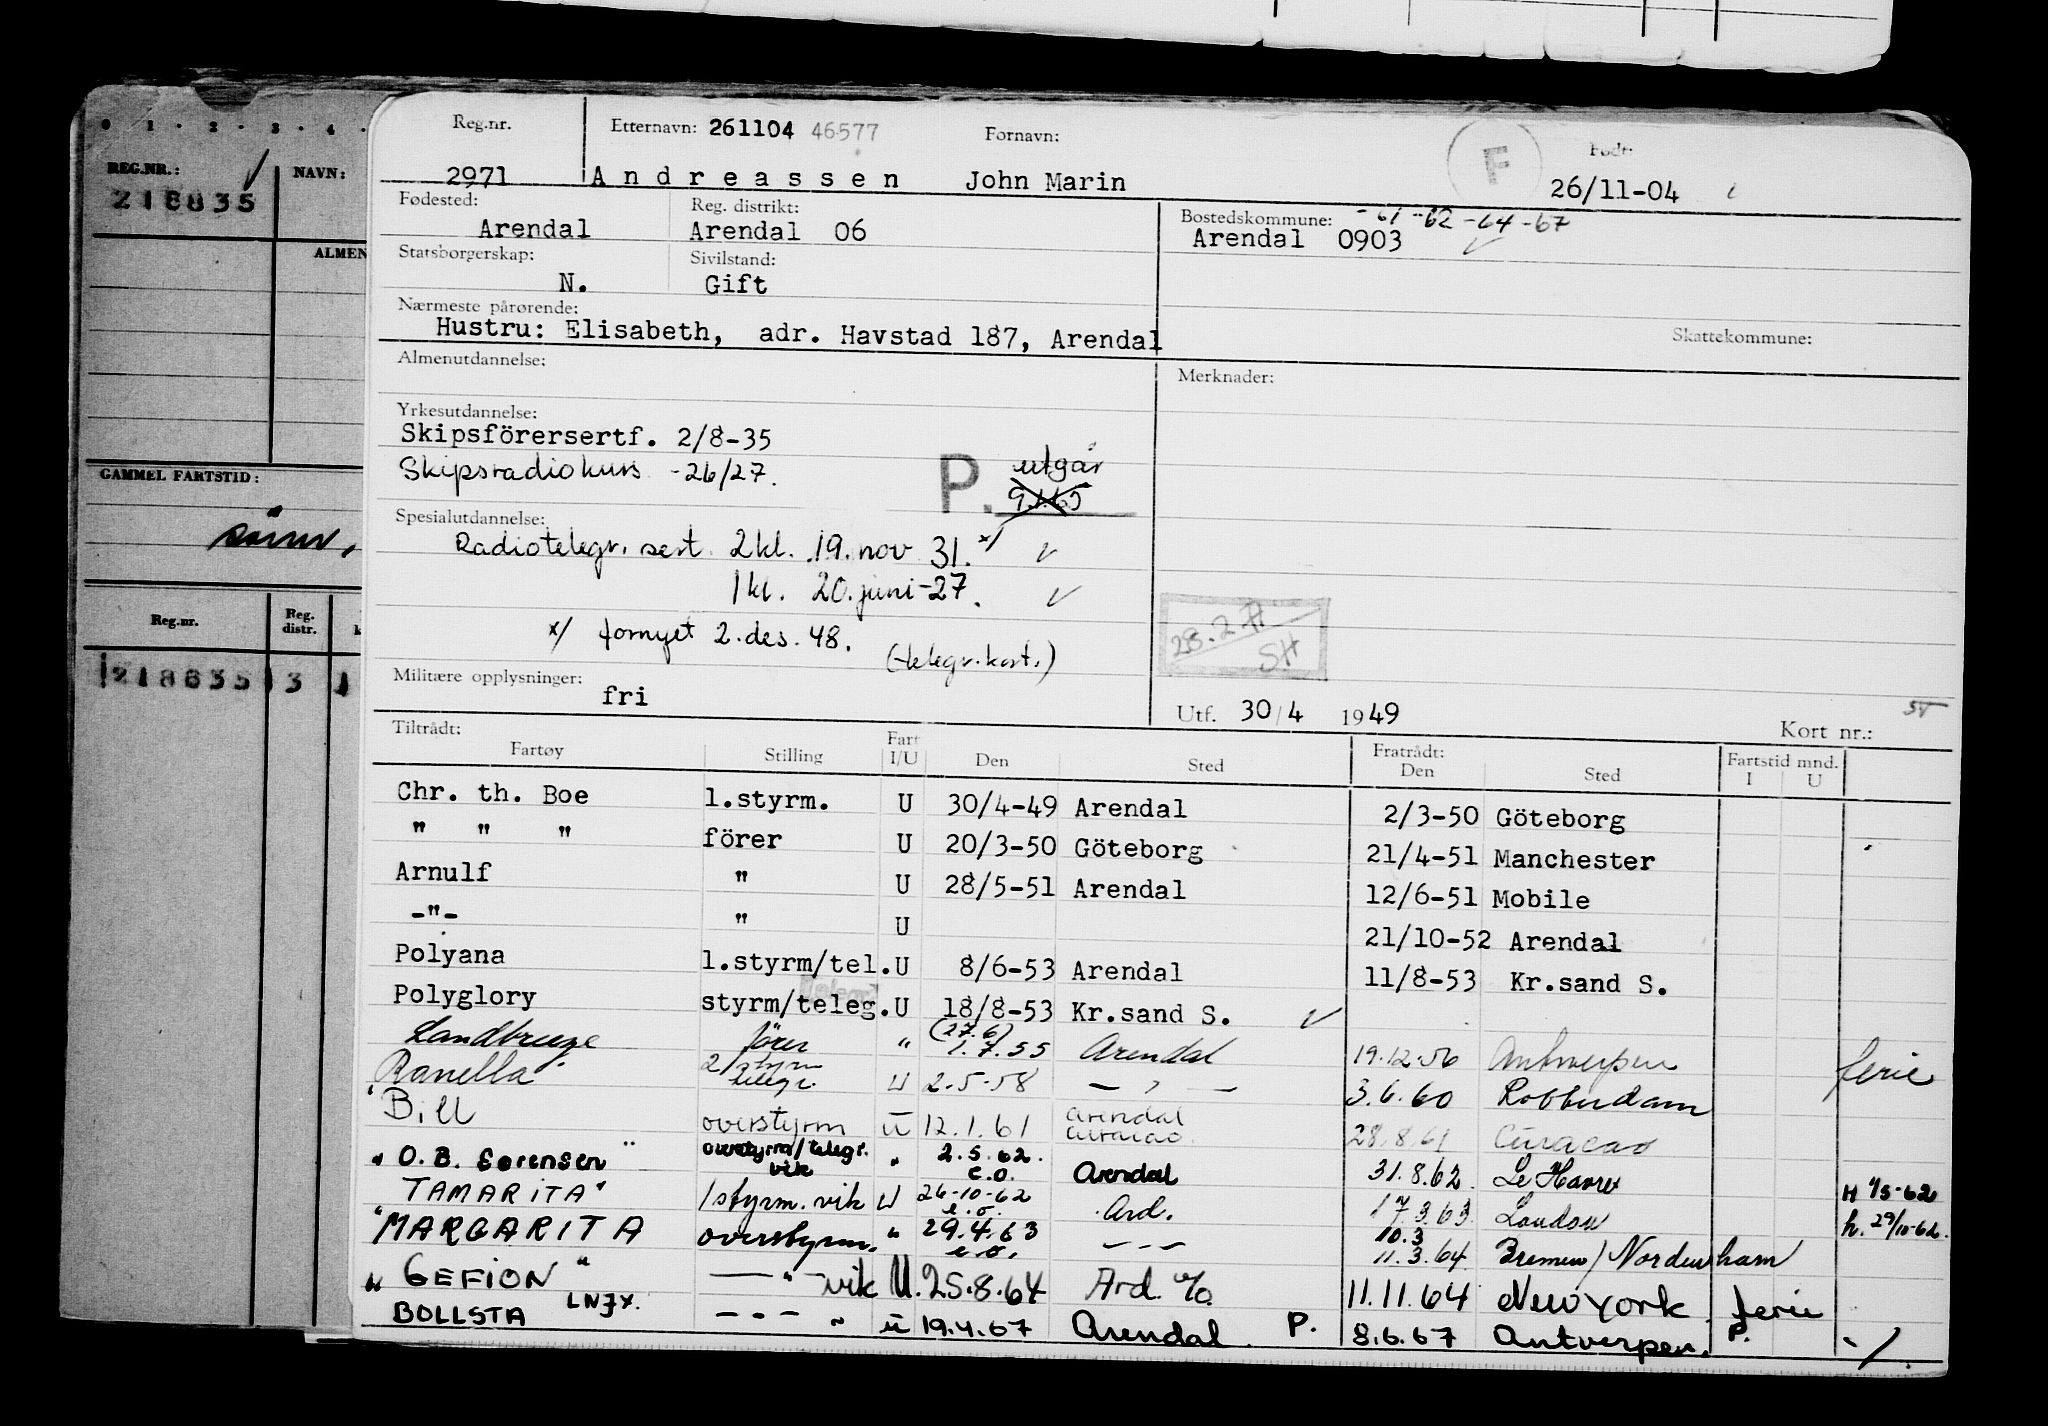 0 1 · 2 · 3 · 4 ·
REG.NR.: NAVN:
218835
ALMEN
GAMMEL FARTSTID:
Reg.nr. Reg. distr.
218835 3 1
Reg.nr. Etternavn: 261104 46577 Fornavn: F Født:
2971 Andreassen John Marin 26/11-04
Fødested: Reg. distrikt: Bostedskommune: -61-62-64-67
Arendal Arendal 06 Arendal 0903
Statsborgerskap: Sivilstand:
N. Gift
Nærmeste pårørende:
Hustru: Elisabeth, adr. Havstad 187, Arendal Skattekommune:
Almenutdannelse: Merknader:
Yrkesutdannelse:
Skipsförersertf. 2/8-35
Skipsradiokurs -26/27. P. utgår
Spesialutdannelse:
Radiotelegr. sert. 2kl. 19. nov 31. x/
1 kl. 20. juni-27.
x/ fornyet 2. des. 48.
(telegr.kort.)
28.2
SH
Militære opplysninger:
fri
Utf. 30/4 1949 Kort nr.:
Tiltrådt: Fratrådt: Fartstid mnd.
Fartøy Stilling Fart I/U Den Sted Den Sted I U
Chr. th. Boe 1.styrm. U 30/4-49 Arendal 2/3-50 Göteborg
" " " förer U 20/3-50 Göteborg 21/4-51 Manchester
Arnulf " U 28/5-51 Arendal 12/6-51 Mobile
-"- " U 21/10-52 Arendal
Polyana 1.styrm/tel. U 8/6-53 Arendal 11/8-53 Kr.sand S.
Polyglory styrm/teleg. U 18/8-53 Kr.sand S.
Landbreeze fören " (27.6) 1.7.55 Arendal 19.12.56 Antwerpen ferie
Ranella 2/styrm telegr. U 2.5.58 — " — 3.6.60 Rotterdam
"Bill" overstyrm U 12.1.61 Arendal Curacao 28.8.61 Curacao
"O.B. Sørensen" overstyrm/telegr. vik " 2.5.62. e.o. Arendal 31.8.62. Le Havre H 1/5-62
TAMARITA" 1styrm. vik U 26-10-62 e.o. Ard. 17.3.63 London h. 29/10-62.
"MARGARITA overstyrm. " 29.4.63 e.o. — " — 10.3 11.3.64. Bremen/Nordenham
"GEFION" — " — vik U. 25.8.64 Ard. e/o. 11.11.64 New York ferie
BOLLSTA LNJX. — " — " U 19.4.67 Arendal P. 8.6.67 Antwerpen. P.